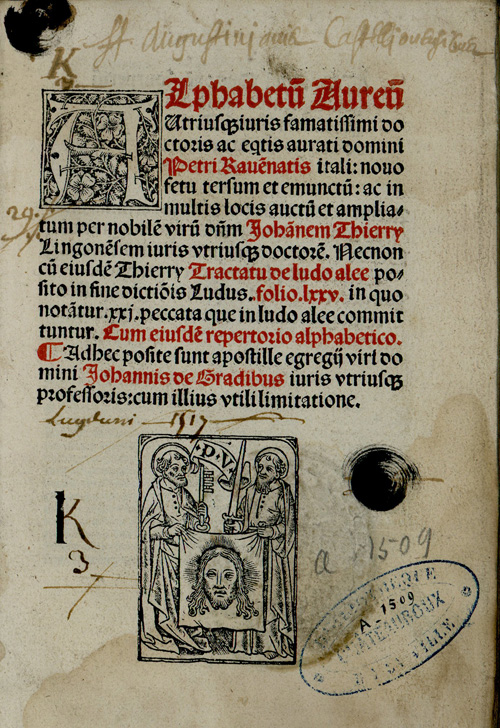 K
3
Alphabetū Aureū
Utriusqꝫ iuris famatissimi do
ctoris ac eq̄tis aurati domini
Petri Rauēnatis itali: nouo
fetu tersum et emunctū: ac in
multis locis auctū et amplia-
tum per nobilē virū dn̄m Johānem Thierry
Lingonēsem iuris vtriusqꝫ doctorē. Necnon
cū eiusdē Thierry Tractatu de ludo alee po-
sito in fine dictiōis Ludus. folio.lxxv. in quo
notātur.xxj.peccata que in ludo alee commit
tuntur. Cum eiusdē repertorio alphabetico.
¶Adhec posite sunt apostille egregij viri do
mini Johannis de Gradibus iuris vtriusqꝫ
professoris:cum illius vtili limitatione.
Lugduni 1517
D.V.
K
3
a 1509
A. 1509
CHATEAUROUX